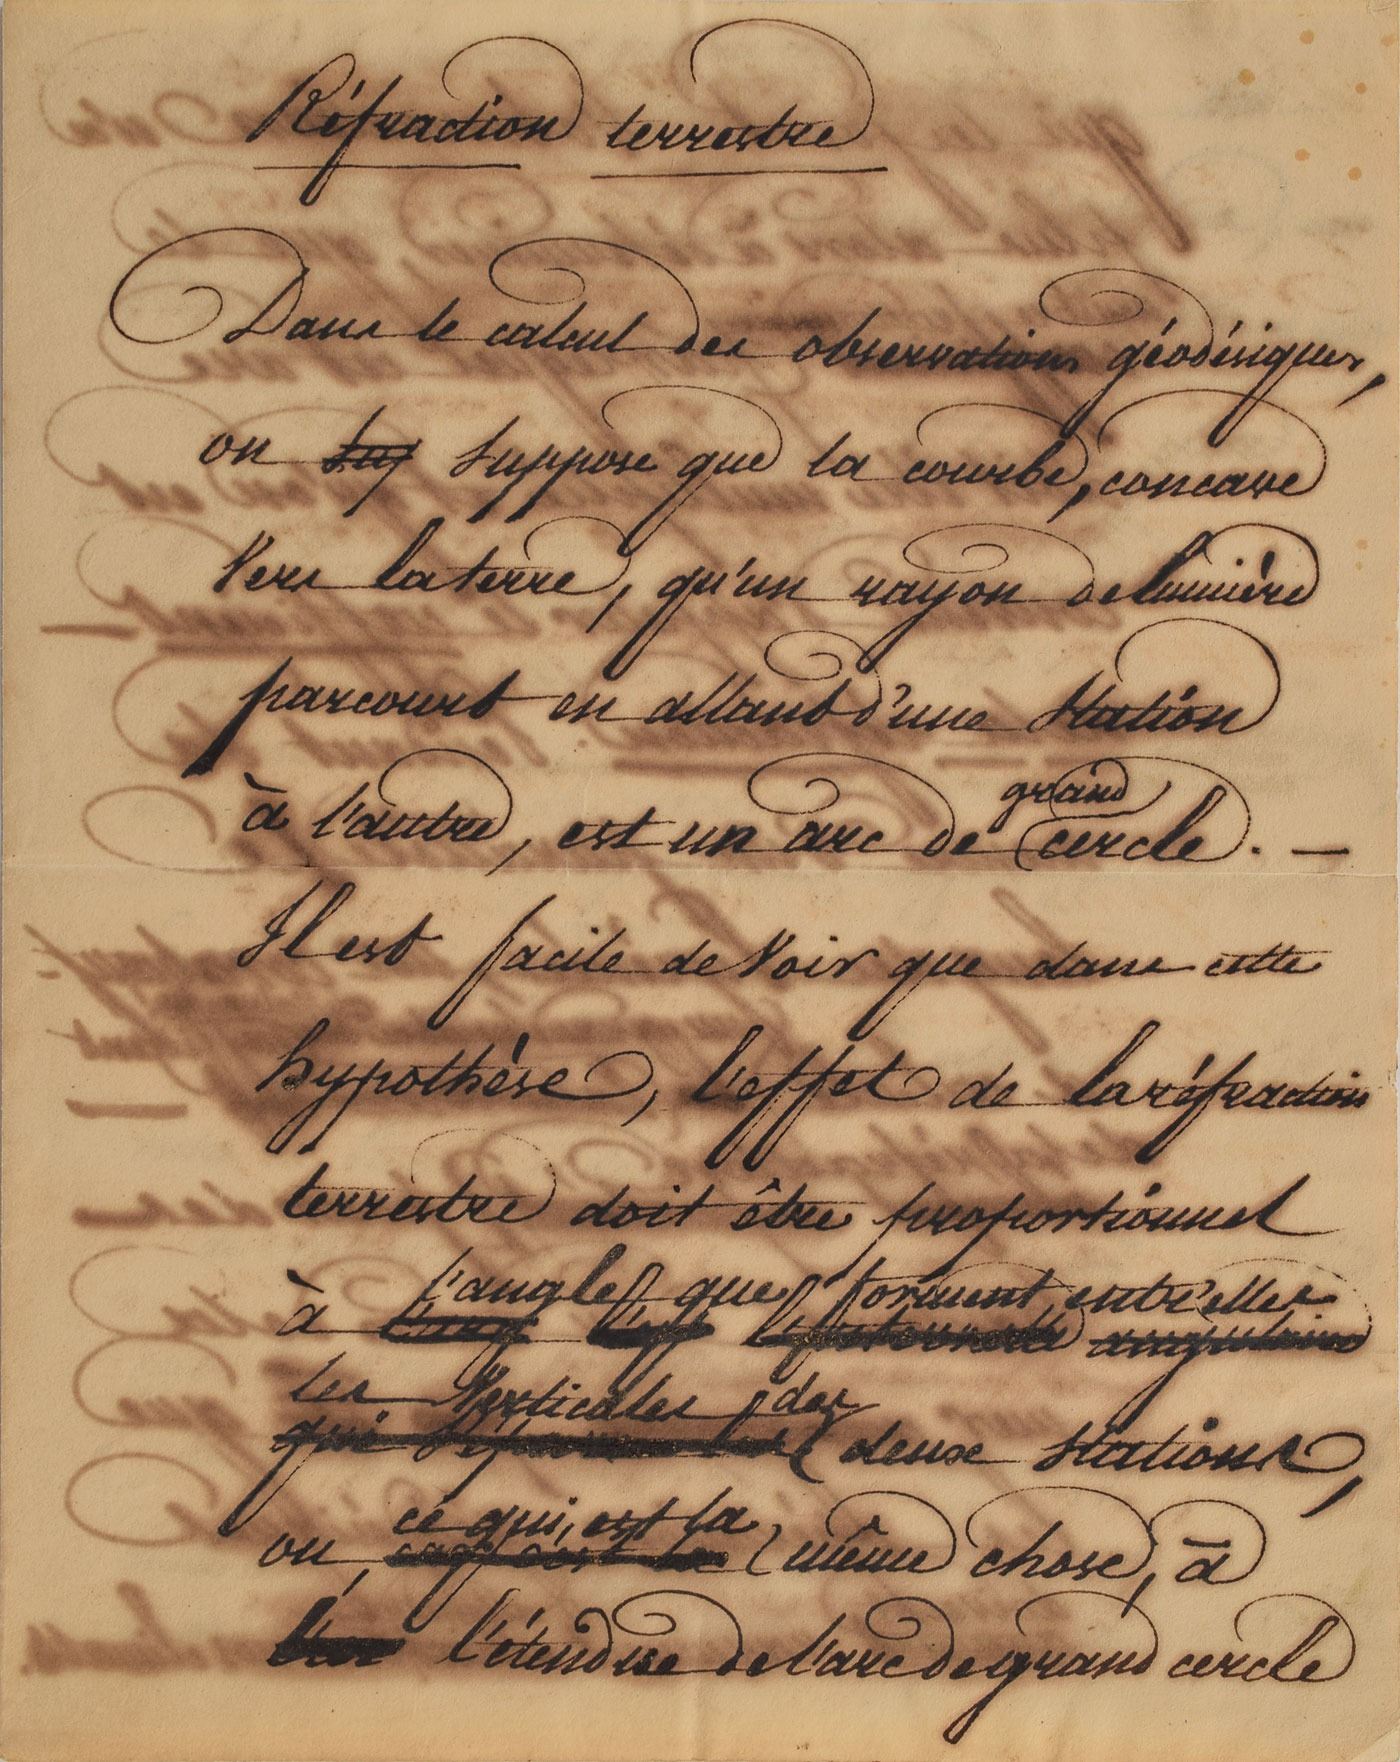 Réfraction terrestre
Dans le calcul des observations géodésiques,
on suppose que la courbe, concave
Vers la terre, qu'un rayon de lumière
parcourt en allant d'une station
à l'autre, est un arc de grand cercle. —
Il est facile de Voir que dans cette
hypothèse, l'effet de la réfraction
terrestre doit être proportionnel
l'angle que forment entr'elles
à
les Verticales des
deux stations,
ce qui est la
ou même chose, à
l'étendue de l'arc de grand cercle